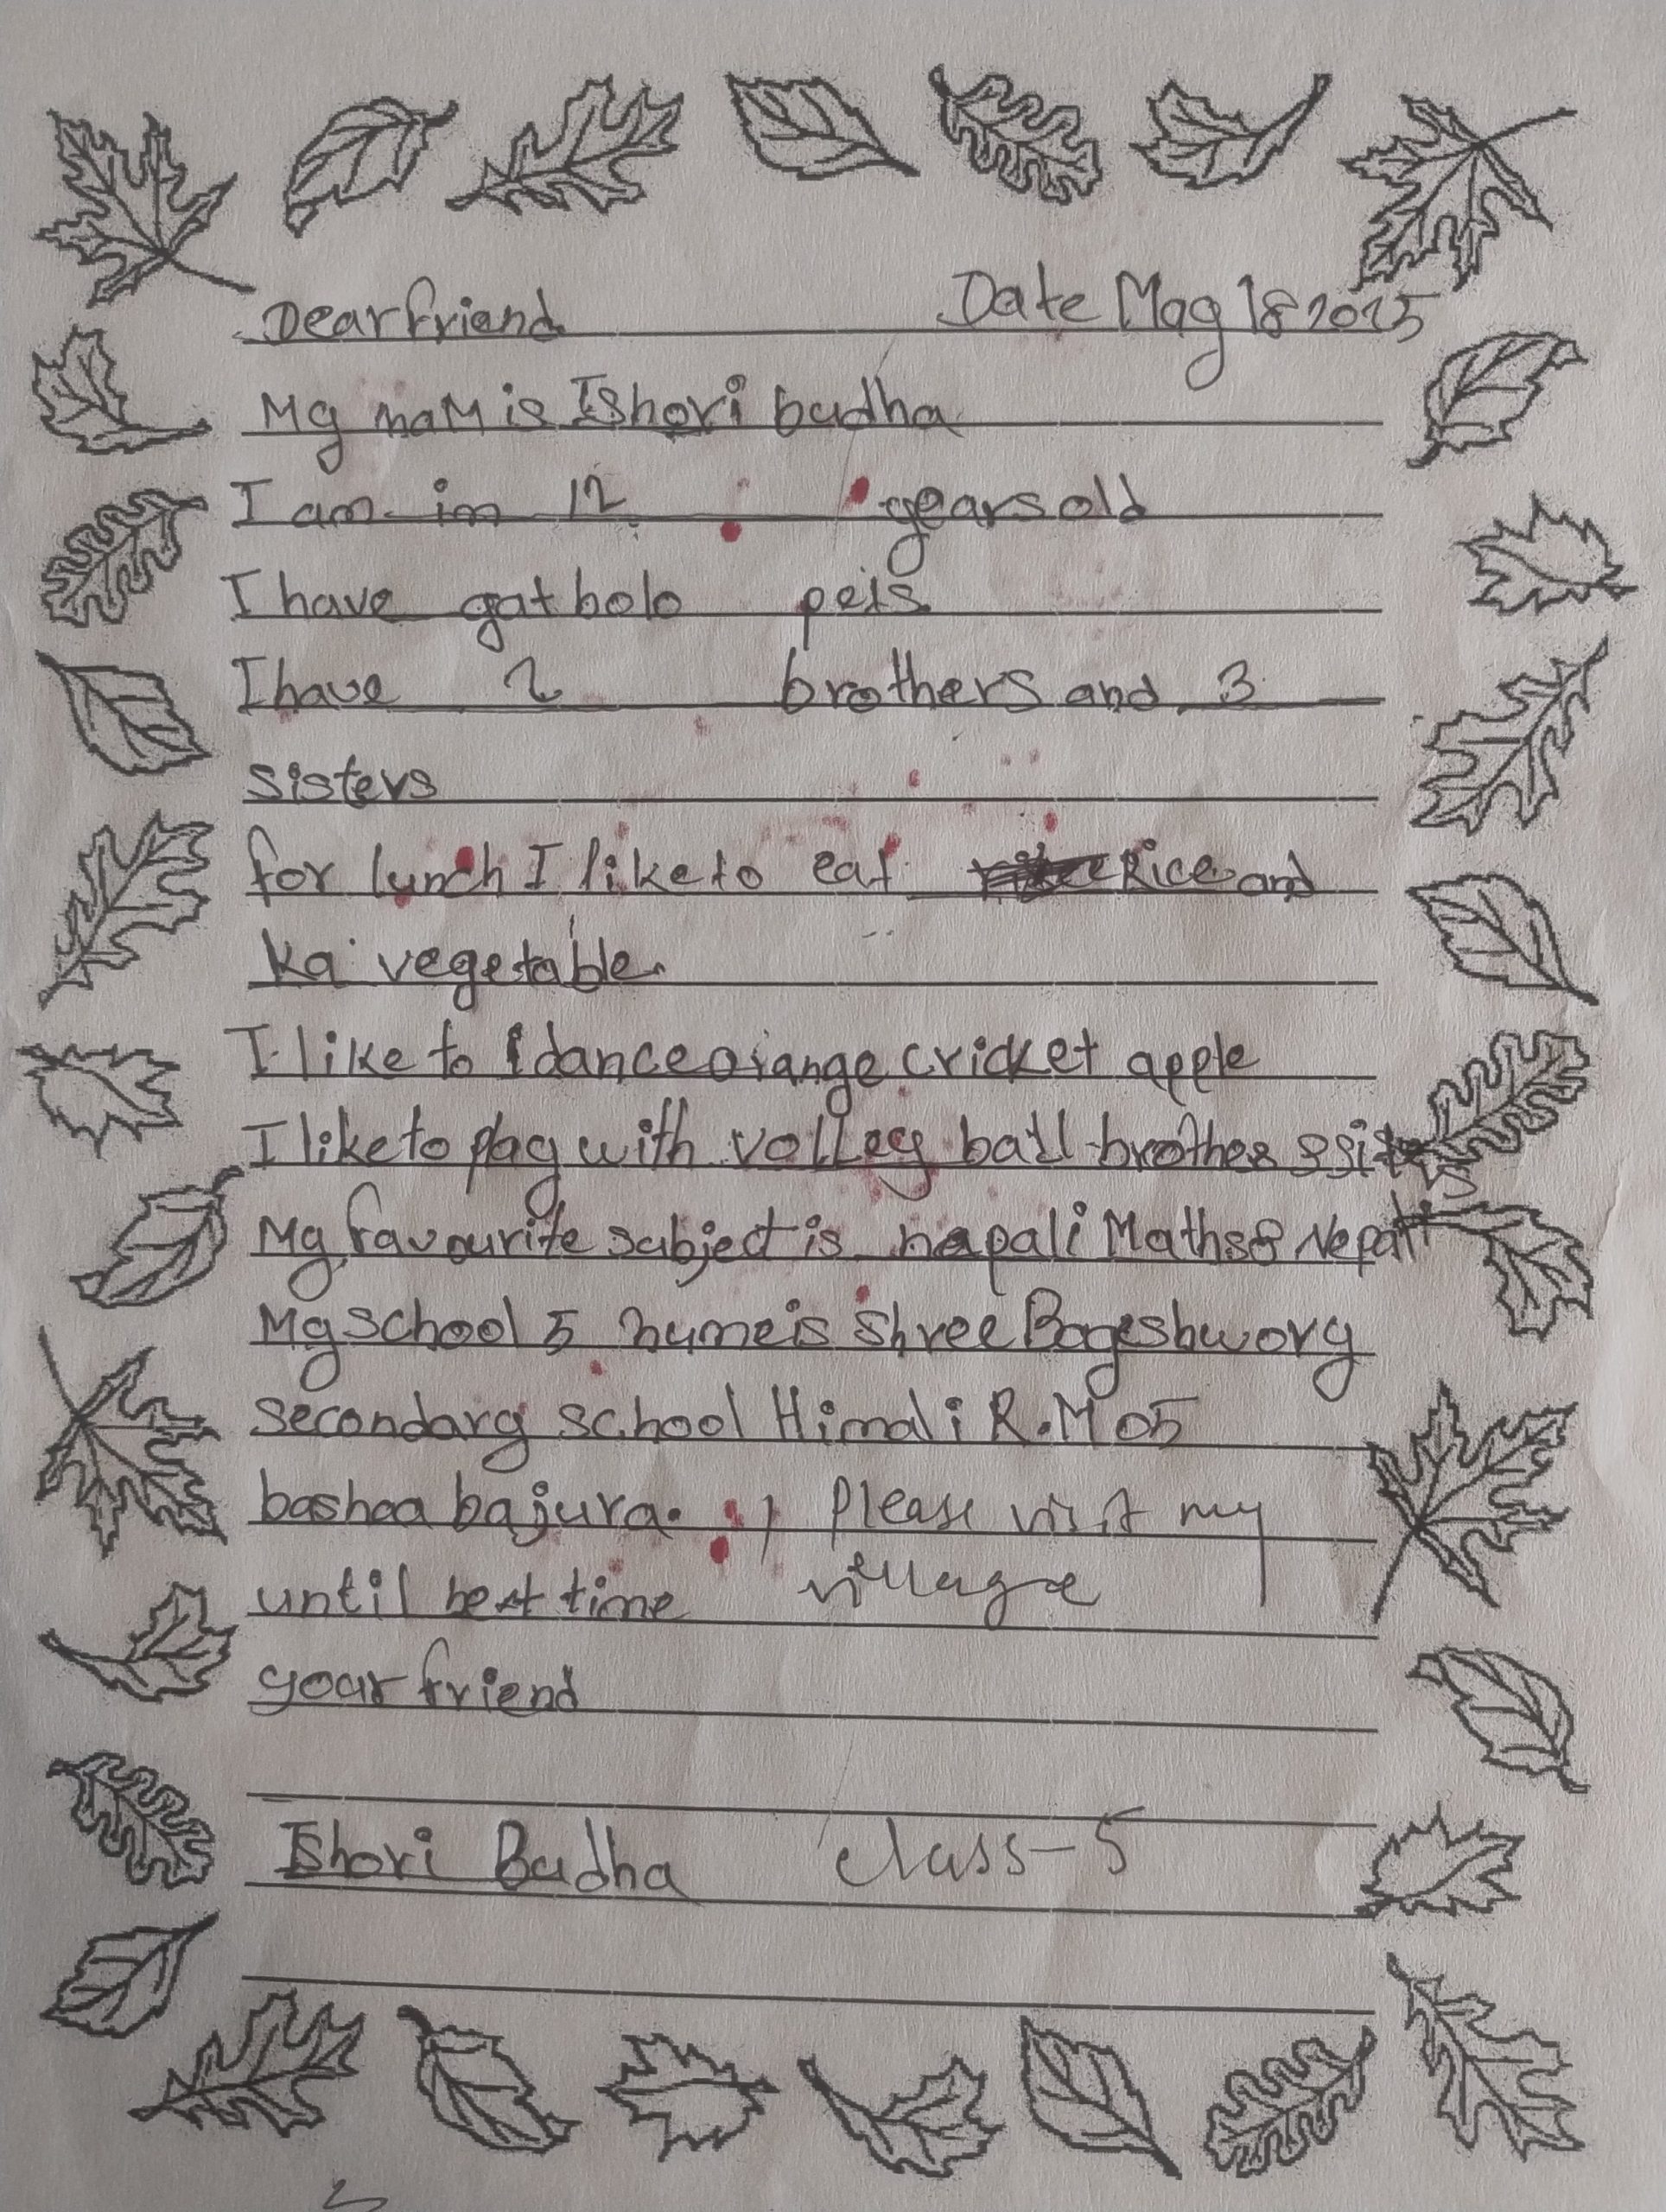 Dear friend Date Mag 18 2025
Mg naM is IShori budha
I am in 12 gears old
I have gat bolo pets
I have 2 brothers and 3
sisters
for lunch I like to eat Rice and
ka vegetable.
I like to dance orange cricket apple
I like to plag with volleg ball brother
Mg favourite subject is nepali Maths & Nepali
Mg school 5 nume is Shree Bageshworg
secondarg school Himali R.M 05
bashaa bajura. , Please visit my
until next time village
gour friend
Ishori Budha class-5